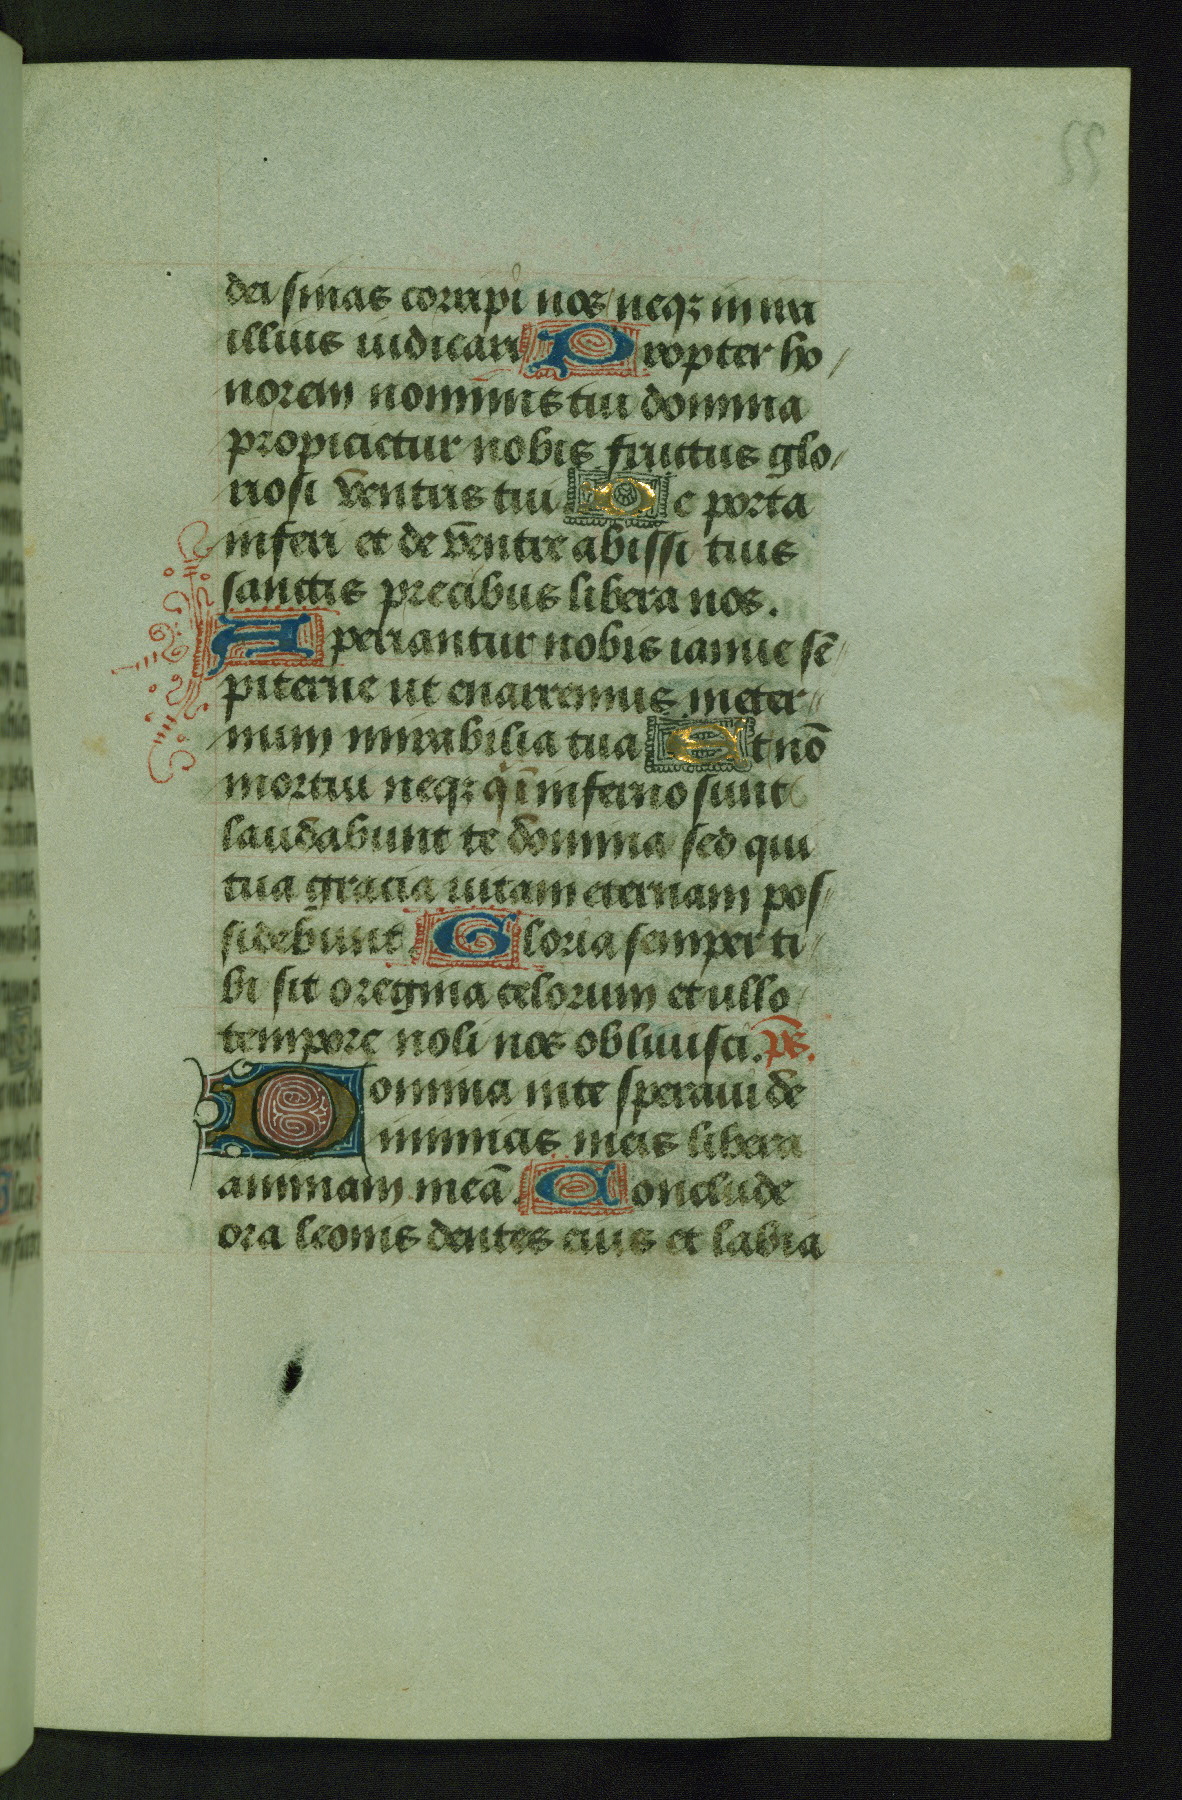 55
dei sinas corripi nos neqꝫ in ira
illius iudicari Propter ho/
norem nominis tui domina
propicietur nobis fructus glo/
riosi ventris tui De porta
inferi et de ventre abissi tuis
sanctis precibus libera nos.
Aperiantur nobis ianue sē/
piterne ut enarremus in eter/
num mirabilia tua Et nō
mortui neqꝫ qͥ in inferno sunt
laudabunt te domina sed qui
tua gracia uitam eternam pos/
sidebunt Gloria semper ti/
bi sit o regina celorum et ullo
tempore noli nos obliuisci. p̄s.
Domina in te speraui de
inimicis meis libera
animam meā. Conclude
ora leonis dentes eius et labia